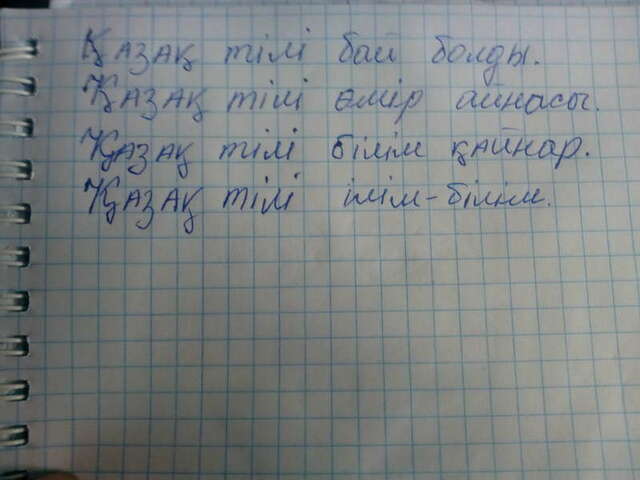 Қазақ тілі бай болды.
Қазақ тілі өмір айнасы.
Қазақ тілі білім қайнар.
Қазақ тілі ілім-білім.